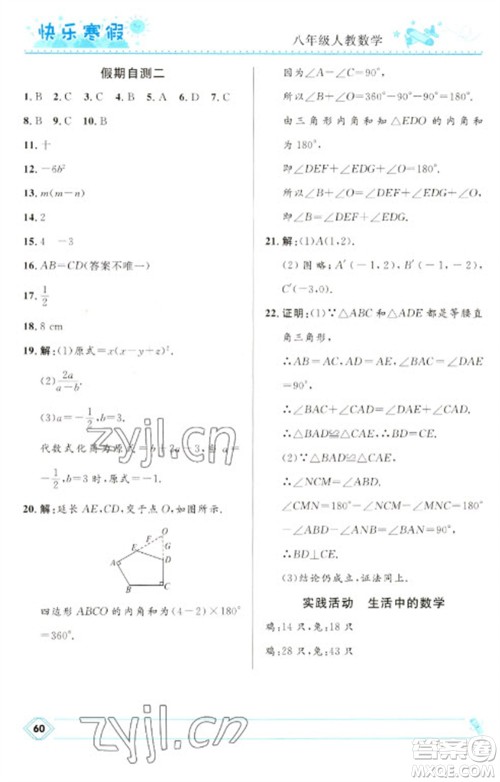 快乐寒假
八年级人教数学
假期自测二
1. B 2. C 3. C 4. B 5. A 6. D 7. C
8. B 9. C 10. B
11. 十
12. −6b²
13. m(m−n)
14. 2
15. 4 −3
16. AB=CD(答案不唯一)
17. 1/2
18. 8 cm
19. 解:(1)原式=x(x−y)².
(2) 2a/(a−b).
(3)a=−1/2,b=3.
代数式化简为原式=2a−3,
−1/2,b=3 时,原式=
20. 解:延长 AE,CD,交于点 O,如图所示.
O
E
F
G
A
D
B
C
四边形 ABCO 的内角和为(4−2)×180°
=360°.
因为∠A=∠C=90°,
所以∠B+∠O=360°−90°−90°=180°.
由三角形内角和知△EDO 的内角和为
180°,
即∠DEF+∠EDG+∠O=180°.
所以∠B=∠DEF+∠EDG,
即∠DEF+∠EDG=∠B.
21. 解:(1)A(1,2).
(2)图略;A′(−1,−2),B′(−2,−1),
C′(−3,0).
22. 证明:(1)∵△ABC 和△ADE 都是等腰直
角三角形,
∴AB=AC,AD=AE.
∴∠BAC+∠CAD=∠EAD+∠CAD,
∴∠BAD=∠CAE.
∴△BAD≌△CAE(SAS).
∴BD=CE.
∴∠ABD=∠ACE.
∴∠ANB=∠CND,
∠CMN=180°−∠NCM−∠MNC=180°
−∠ABD−∠ANB=∠BAN=90°.
∴BD⊥CE.
(3)结论仍成立,证法同上.
实践活动 生活中的数学
鸡:14 只,兔:18 只
鸡:28 只,兔:43 只
60
zyjl.cn
zyjl.cn
答案圈
MXQE.COM